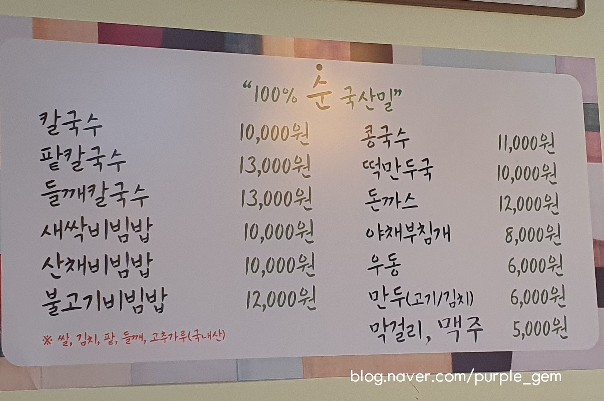 “100% 순 국산밀”
칼국수 10,000원
팥칼국수 13,000원
들깨칼국수 13,000원
새싹비빔밥 10,000원
산채비빔밥 10,000원
불고기비빔밥 12,000원
※ 쌀, 김치, 팥, 들깨, 고추가루(국내산)
콩국수 11,000원
떡만두국 10,000원
돈까스 12,000원
야채부침개 8,000원
우동 6,000원
만두(고기/김치) 6,000원
막걸리, 맥주 5,000원
blog.naver.com/purple_gem